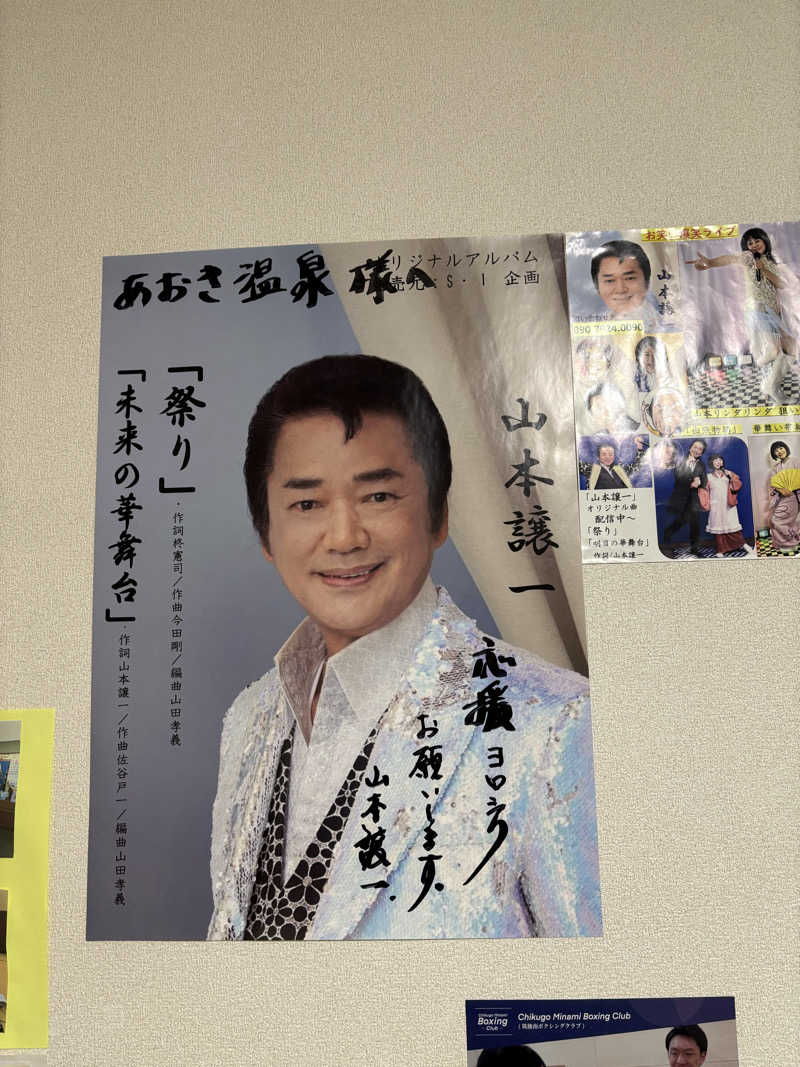 あおき温泉 様へ
リジナルアルバム
売元:S・I 企画
山本譲一
「祭り」・作詞柊憲司/作曲今田剛/編曲山田孝義
「未来の華舞台」・作詞山本譲一/作曲佐谷戸一/編曲山田孝義
応援ヨロシク
お願いします。
山本譲一.
お笑い爆笑ライブ
山本譲
090
0090
山本リンダリンダ
華舞い
「山本譲一」
オリジナル曲
配信中〜
「祭り」
「明日の華舞台」
作詞/山本譲一
Chikugo Minami
Boxing
Club
Chikugo Minami Boxing Club
(筑後南ボクシングクラブ)